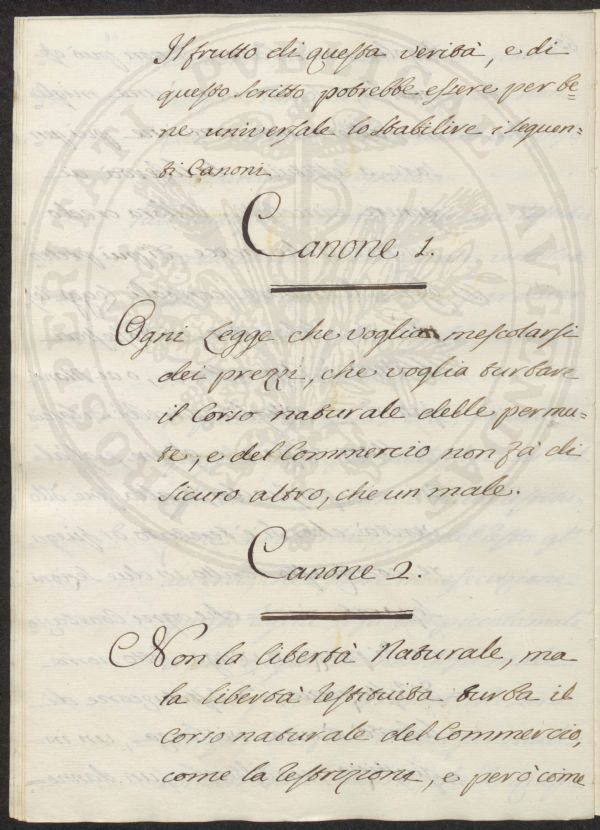 Il frutto di questa verità, e di
questo scritto potrebbe essere per be=
ne universale lo stabilire i seguen=
ti Canoni
Canone 1.
Ogni Legge che voglia mescolarsi
dei prezzi, che voglia turbare
il Corso naturale delle permu=
te, e del Commercio non fà di
sicuro altro, che un male.
Canone 2.
Non la libertà Naturale, ma
la libertà restituita turba il
corso naturale del Commercio,
come la restrizione, e però come
PROSPERITATI PUBLICAE AUGENDAE